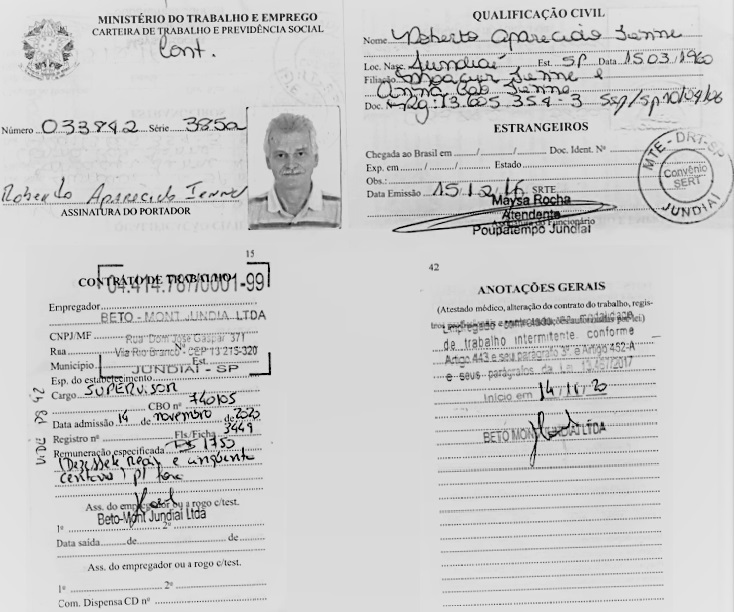 MINISTÉRIO DO TRABALHO E EMPREGO
CARTEIRA DE TRABALHO E PREVIDÊNCIA SOCIAL
Cont.
Número 033842 Série 385a
Roberto Aparecido Ienne
ASSINATURA DO PORTADOR
QUALIFICAÇÃO CIVIL
Nome Roberto Aparecido Ienne
Loc. Nasc. Jundiaí Est. SP Data 15.03.1960
Filiação Moacyr Ienne e
Anna Ienne
Doc. Nº Rg: 13.605.354-3 SSP/SP 10/04/06
ESTRANGEIROS
Chegada ao Brasil em ....../....../...... Doc. Ident. Nº
Exp. em ....../....../...... Estado
Obs.:
Data Emissão 15.12.16 SRTE
Maysa Rocha
Atendente
Poupatempo Jundiaí
MTE - DRT-SP
Convênio
SERT
JUNDIAÍ
15
CONTRATO DE TRABALHO
04.414.787/0001-99
Empregador
BETO - MONT JUNDIAI LTDA
CNPJ/MF
Rua Dom José Gaspar, 371
Rua Nº
Via Rio Branco - CEP 13.215-320
Município Est.
JUNDIAI - SP
Esp. do estabelecimento
Cargo SUPERVISOR
CBO nº 740105
Data admissão 14 de novembro de 2020
Registro nº Fls/Ficha 3449
Remuneração especificada R$ 17,50
(Dezessete Reais e cinquenta
centavos) p/ hora
VIDE PG 42
Ass. do empregador ou a rogo c/test.
Beto-Mont Jundiai Ltda
1º 2º
Data saída de de
Ass. do empregador ou a rogo c/test.
1º 2º
Com. Dispensa CD nº
42
ANOTAÇÕES GERAIS
(Atestado médico, alteração do contrato do trabalho, regis-
tros profissionais e outras anotações autorizadas por lei.)
Empregado contratado modalidade
de trabalho intermitente, conforme
Artigo 443 e seu parágrafo 3º, e Artigo 452-A
e seus parágrafos da Lei 13.467/2017
Início em 14.11.20
BETO MONT JUNDIAI LTDA